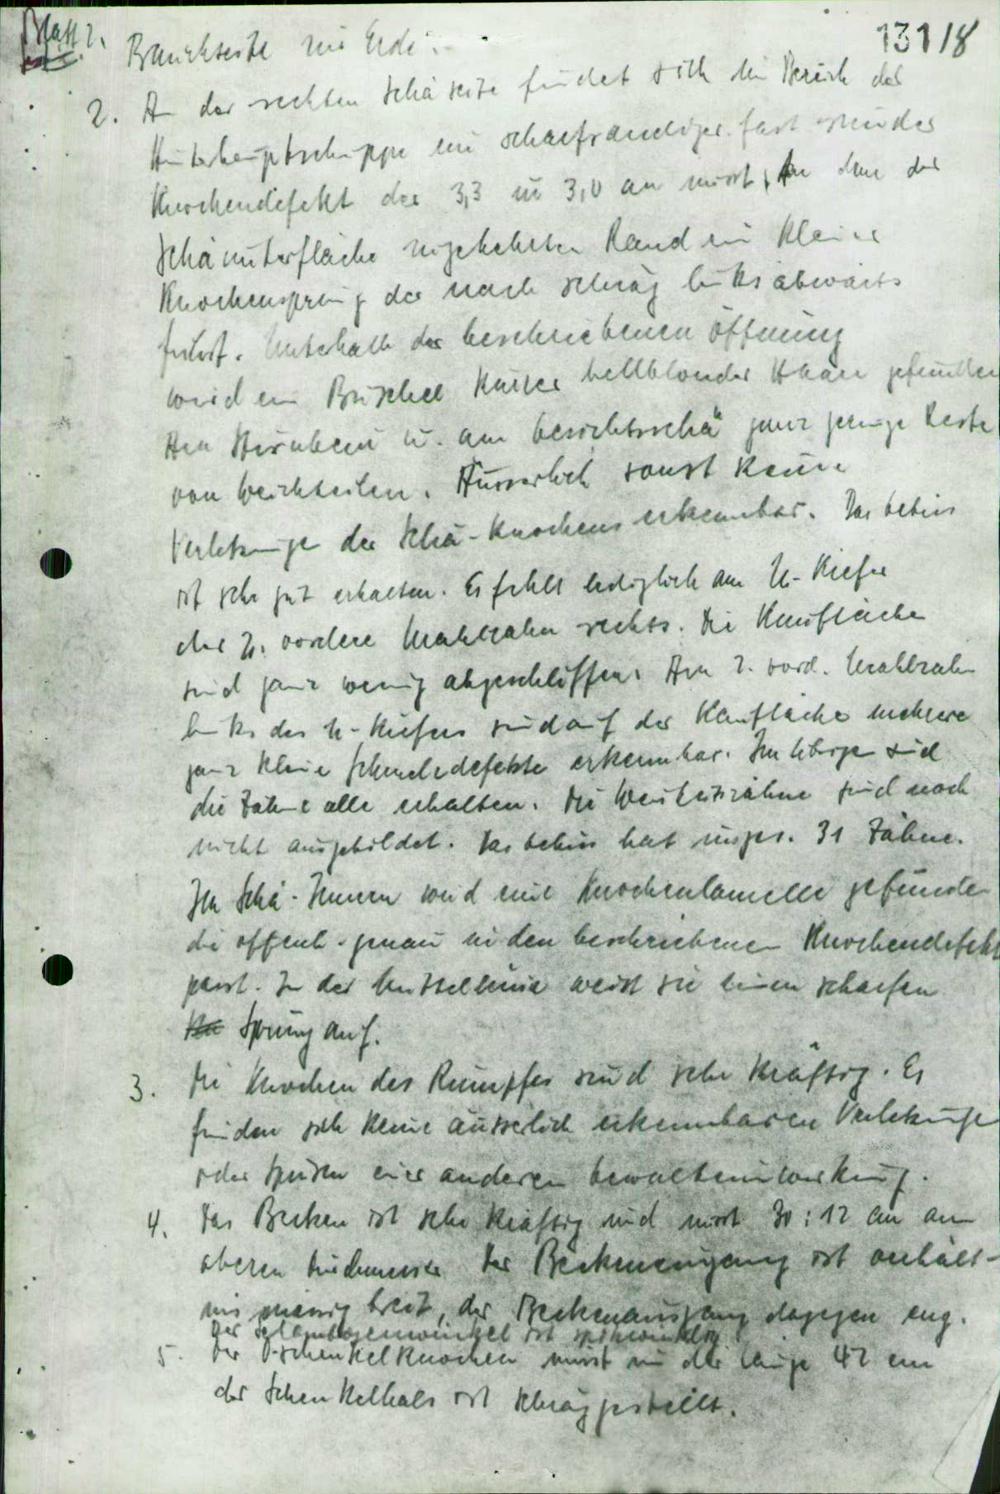 Blatt 2.
131/8
Bauchseite zur Erde.
2. An der rechten Schä seite findet sich im Bereich der
Hinterhauptschuppe ein scharfrandiger fast runder
Knochendefekt der 3,3 zu 3,0 cm misst, An dem der
Schäunterfläche zugekehrten Rand ein kleiner
Knochensprung der nach schräg links abwärts
führt. Unterhalb der beschriebenen Öffnung
wird ein Büschel kurzer hellblonder Haare gefunden
Am Stirnbein u. am Gesichtsschä ganz geringe Reste
von Weichteilen. Äusserlich sonst keine
Verletzungen des Schä-Knochens erkennbar. Das Gebiss
ist sehr gut erhalten. Es fehlt lediglich am U-Kiefer
der 2. vordere Mahlzahn rechts. Die Kaufläche
sind ganz wenig abgeschliffen. Am 2. vord. Mahlzahn
links des U-Kiefers sind auf der Kaufläche mehrere
ganz kleine Schmelzdefekte erkennbar. Im übrigen sind
die Zähne alle erhalten. Die Weisheitszähne sind noch
nicht ausgebildet. Das Gebiss hat insges. 31 Zähne.
Im Schä-Innern wird eine Knochenlamelle gefunden
die offenb. genau in den beschriebenen Knochendefekt
passt. In der Mittellinie weist sie einen scharfen
Sprung auf.
3. Die Knochen des Rumpfes sind sehr kräftig. Es
finden sich keine äusserlich erkennbaren Verletzungen
oder Spuren einer anderen Gewalteinwirkung.
4. Das Becken ist sehr kräftig und misst 30:12 cm am
oberen Durchmesser Der Beckeneingang ist verhält-
nis mässig breit, der Beckenausgang dagegen eng.
Der Schambogenwinkel ist spitzwinklig
5. Der O-schenkelknochen misst in der Länge 42 cm
der Schenkelhals ist schräggestellt.